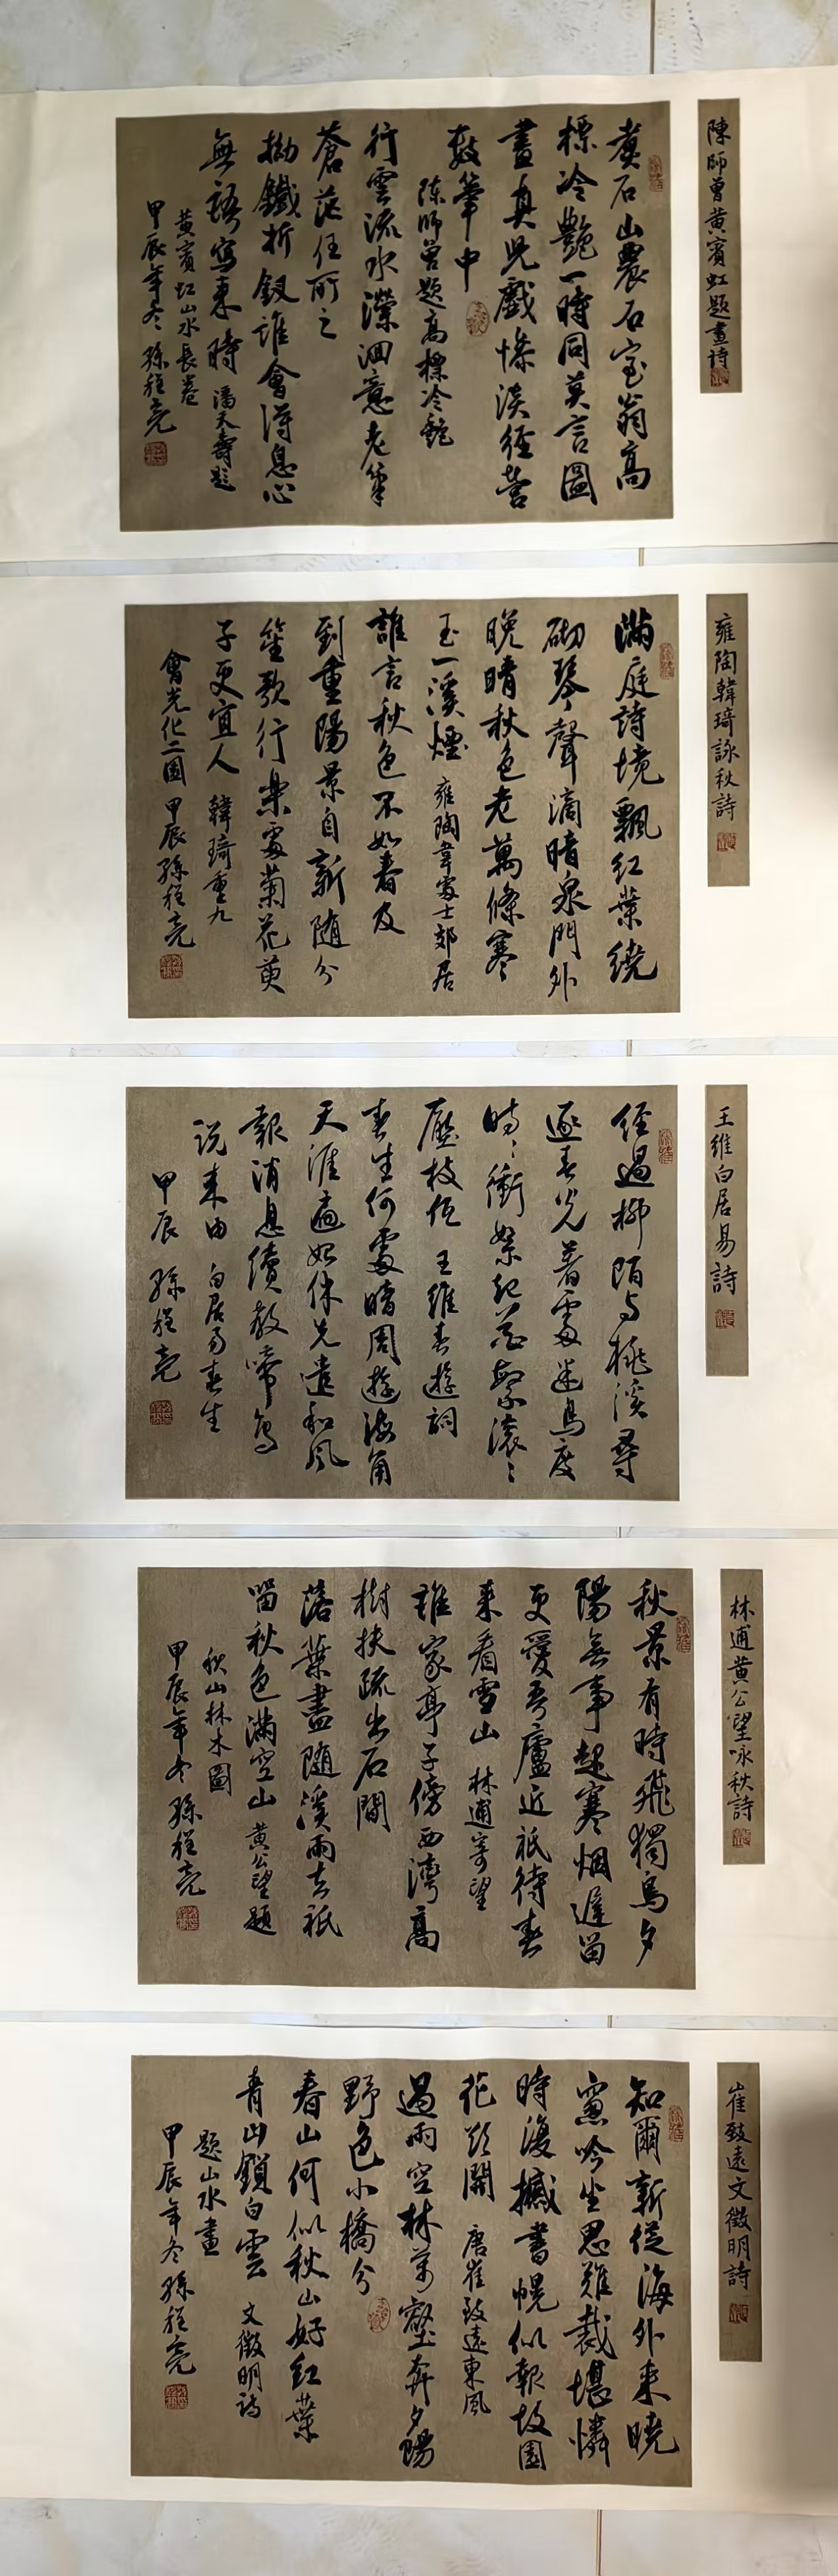 陳師曾黃賓虹題畫詩
煮石山農石室翁高
標冷艷一時同莫言圖
畫真兒戲慘淡經營
數筆中
陳師曾題高標冷艷
行雲流水瀠洄意老筆
蒼茫任所之
拗鐵折釵誰會得息心
無語寫來時 潘天壽題
黃賓虹山水長卷
甲辰年冬 孫程亮
雍陶韓琦詠秋詩
滿庭詩境飄紅葉繞
砌琴聲滴暗泉門外
晚晴秋色老萬條寒
玉一溪煙 雍陶韋處士郊居
誰言秋色不如春及
到重陽景自新隨分
笙歌行樂處菊花萸
子更宜人 韓琦重九
會光化二園 甲辰孫程亮
王維白居易詩
經過柳陌与桃溪尋
逐春光著處迷鳥度
時々衝絮起花繁滾々
壓枝低 王維春遊詞
春生何處暗周遊海角
天涯遍始休先遣和風
報消息續教啼鳥
說來由 白居易春生
甲辰 孫程亮
林逋黃公望咏秋詩
秋景有時飛獨鳥夕
陽無事起寒烟遲留
更愛吾廬近祇待春
來看雪山 林逋寄望
誰家亭子傍西灣高
樹扶疏出石間
落葉盡隨溪雨去祇
留秋色滿空山 黃公望題
秋山林木圖
甲辰年冬孫程亮
崔致遠文徵明詩
知爾新從海外來曉
窻吟坐思難裁堪憐
時復撼書幌似報故園
花欲開 唐崔致遠東風
過雨空林萬壑奔夕陽
野色小橋分
春山何似秋山好紅葉
青山鎖白雲 文徵明詩
題山水畫
甲辰年冬孫程亮